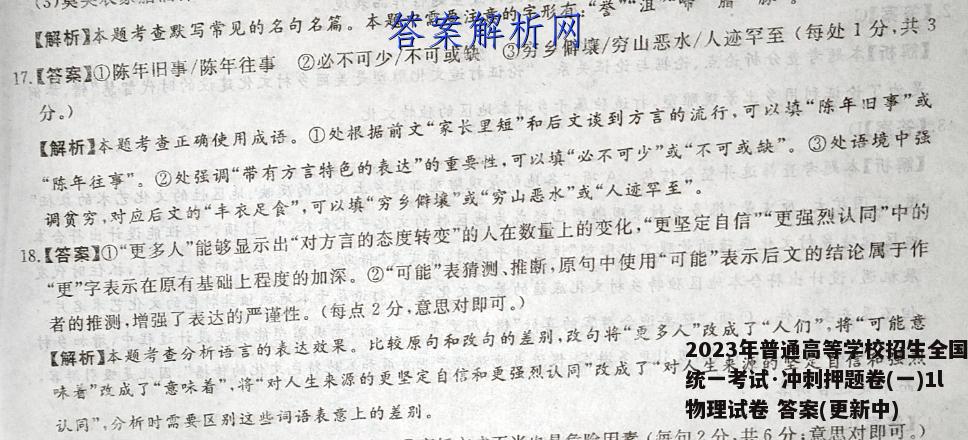 【解析】本题考查默写常见的名句名篇。本题需要注意的字形有:“誉”“沮”
答案解析网
17.【答案】①陈年旧事/陈年往事 ②必不可少/不可或缺 ③穷乡僻壤/穷山恶水/人迹罕至(每处1分,共3
分。)
【解析】本题考查正确使用成语。①处根据前文“家长里短”和后文谈到方言的流行,可以填“陈年旧事”或
“陈年往事”。②处强调“带有方言特色的表达”的重要性,可以填“必不可少”或“不可或缺”。③处语境中强
调贫穷,对应后文的“丰衣足食”,可以填“穷乡僻壤”或“穷山恶水”或“人迹罕至”。
18.【答案】①“更多人”能够显示出“对方言的态度转变”的人在数量上的变化,“更坚定自信”“更强烈认同”中的
“更”字表示在原有基础上程度的加深。②“可能”表猜测、推断,原句中使用“可能”表示后文的结论属于作
者的推测,增强了表达的严谨性。(每点2分,意思对即可。)
【解析】本题考查分析语言的表达效果。比较原句和改句的差别,改句将“更多人”改成了“人们”,将“可能意
味着”改成了“意味着”,将“对人生来源的更坚定自信和更强烈认同”改成了“对人生来源的坚定自信和强烈
认同”,分析时需要区别这些词语表意上的差别。
2023年普通高等学校招生全国
统一考试·冲刺押题卷(一)1l
物理试卷 答案(更新中)
(每句2分,共6分;意思对即可。)